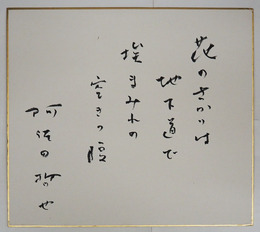 花のさかりは
地下道で
埃まみれの
空きっ腹
阿佐田哲也